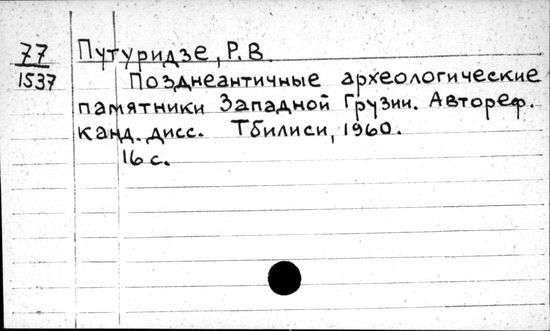 77 Путуридзе, Р.В.
1537 Позднеантичные археологические
памятники Западной Грузии. Автореф.
канд. дисс. Тбилиси, 1960.
16 с.